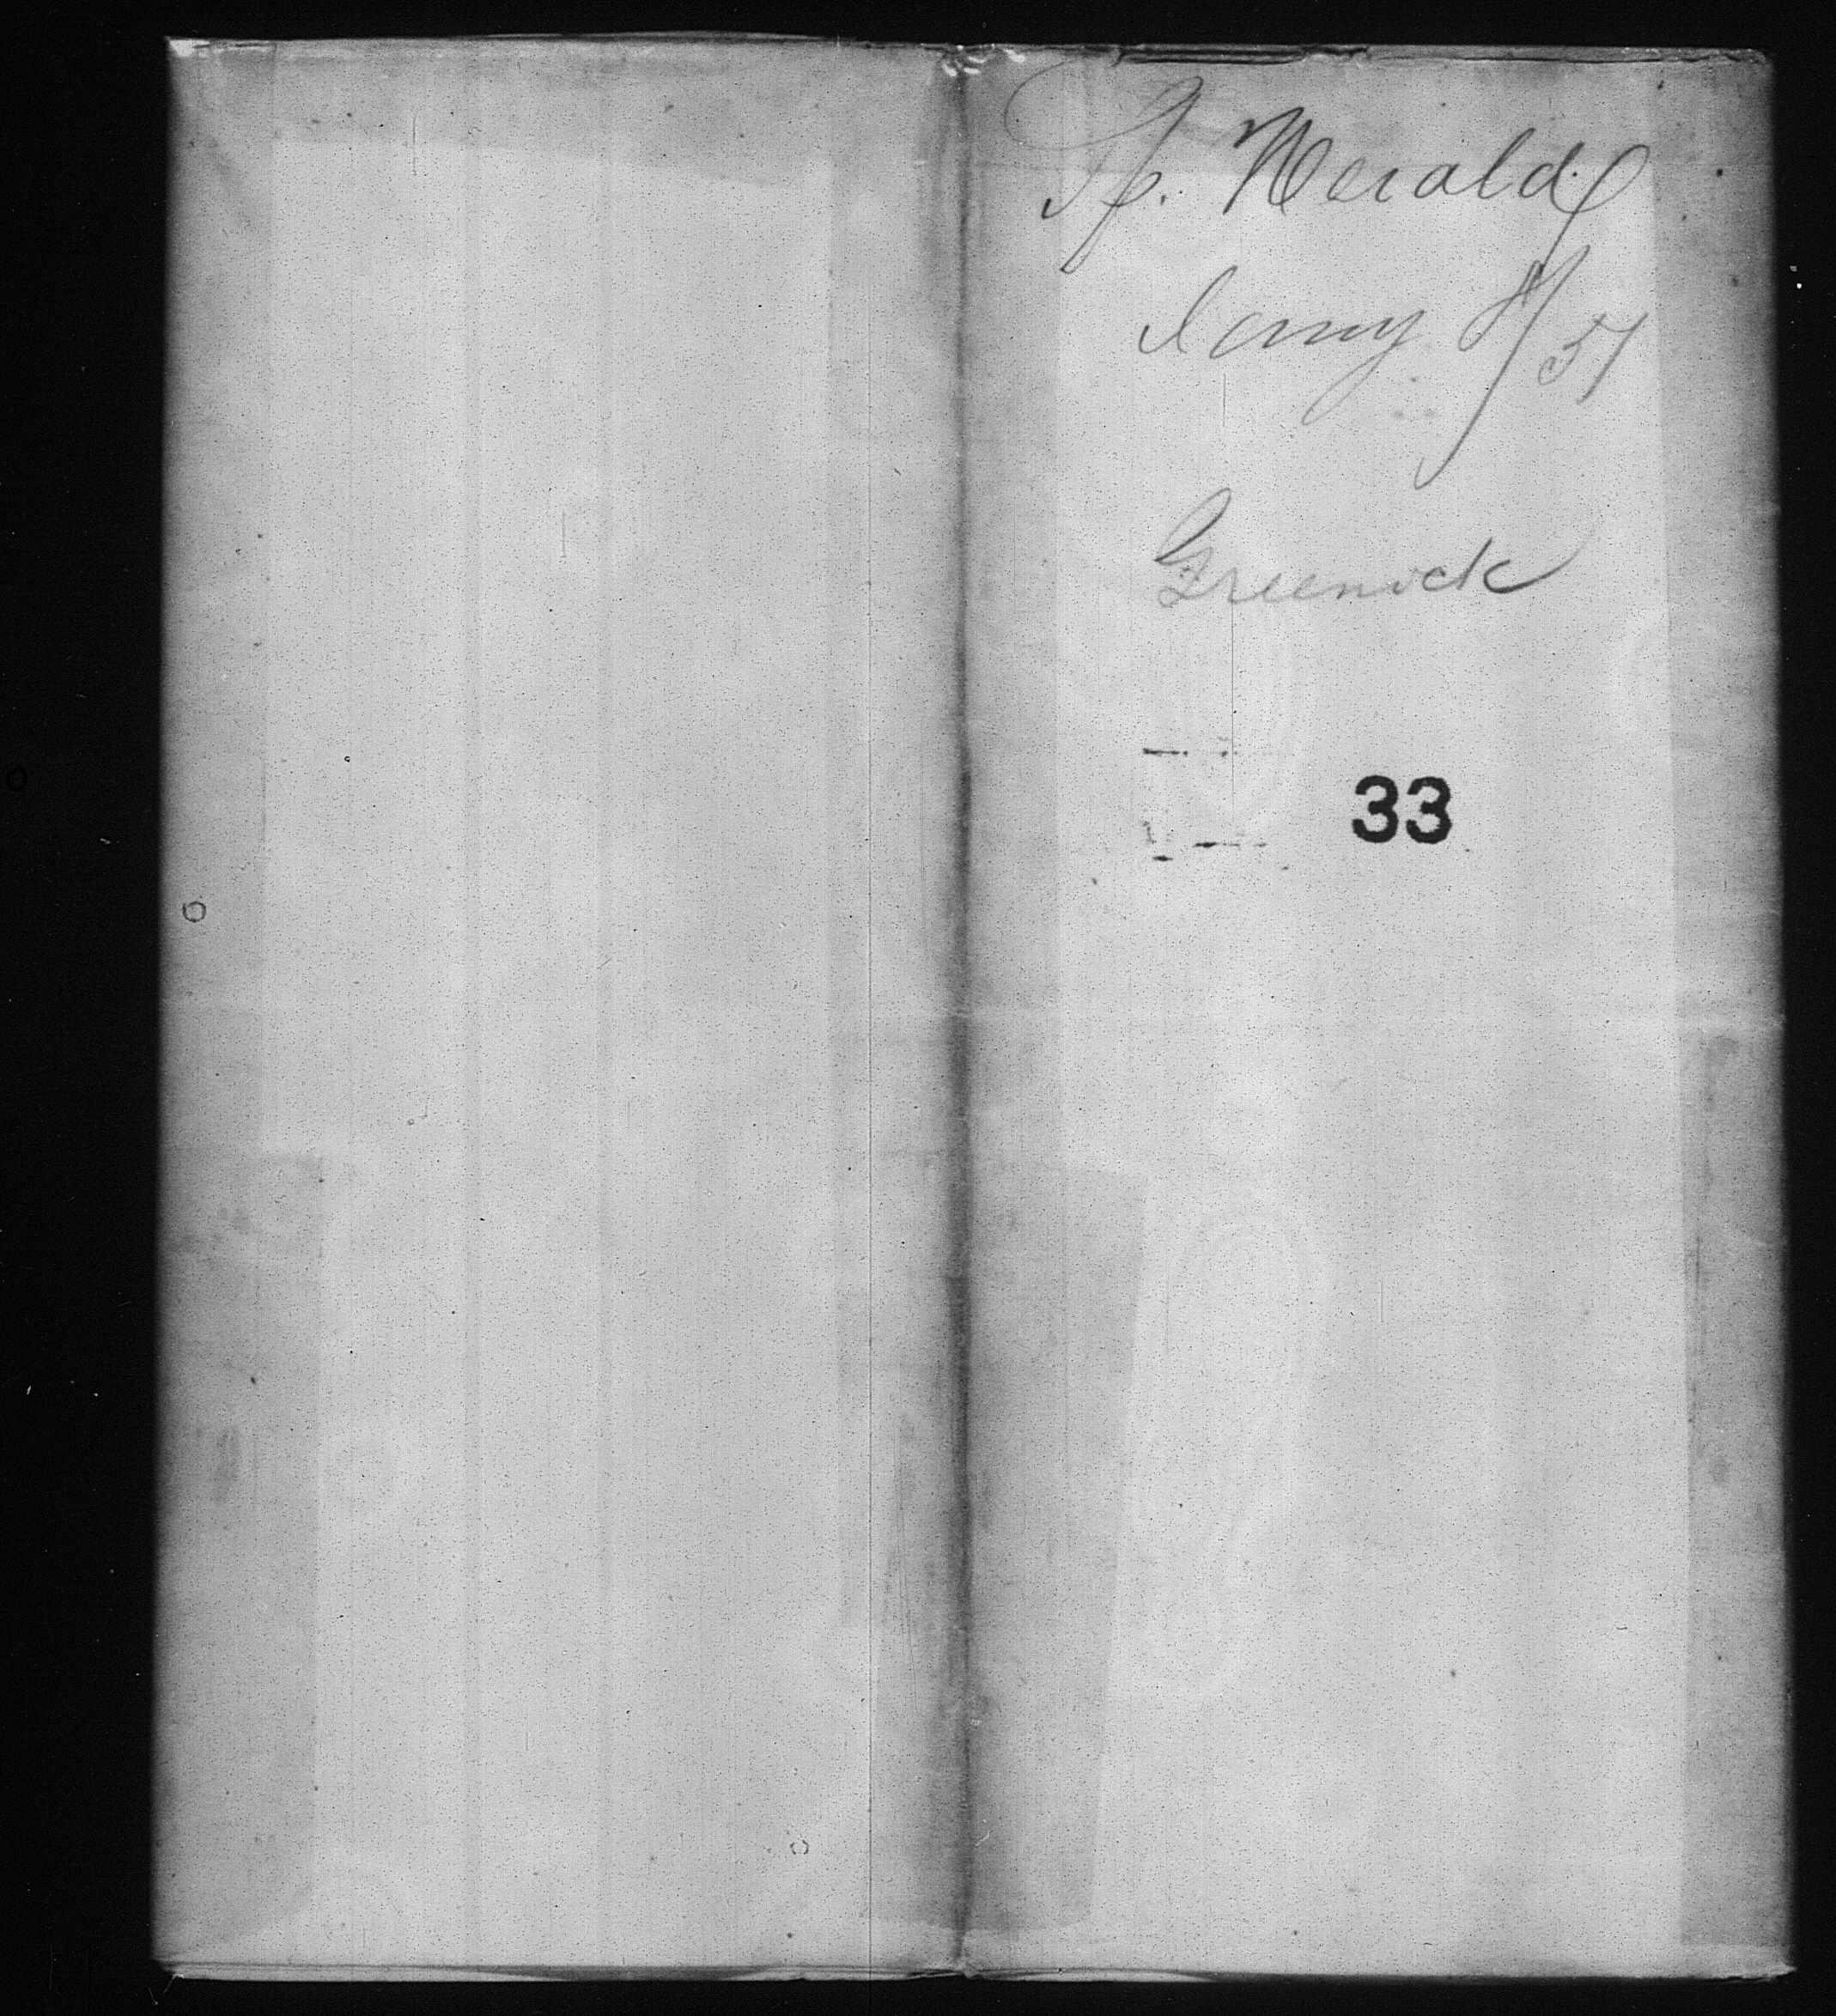 Sp. Herald
Jany 8/51
Greenock
33